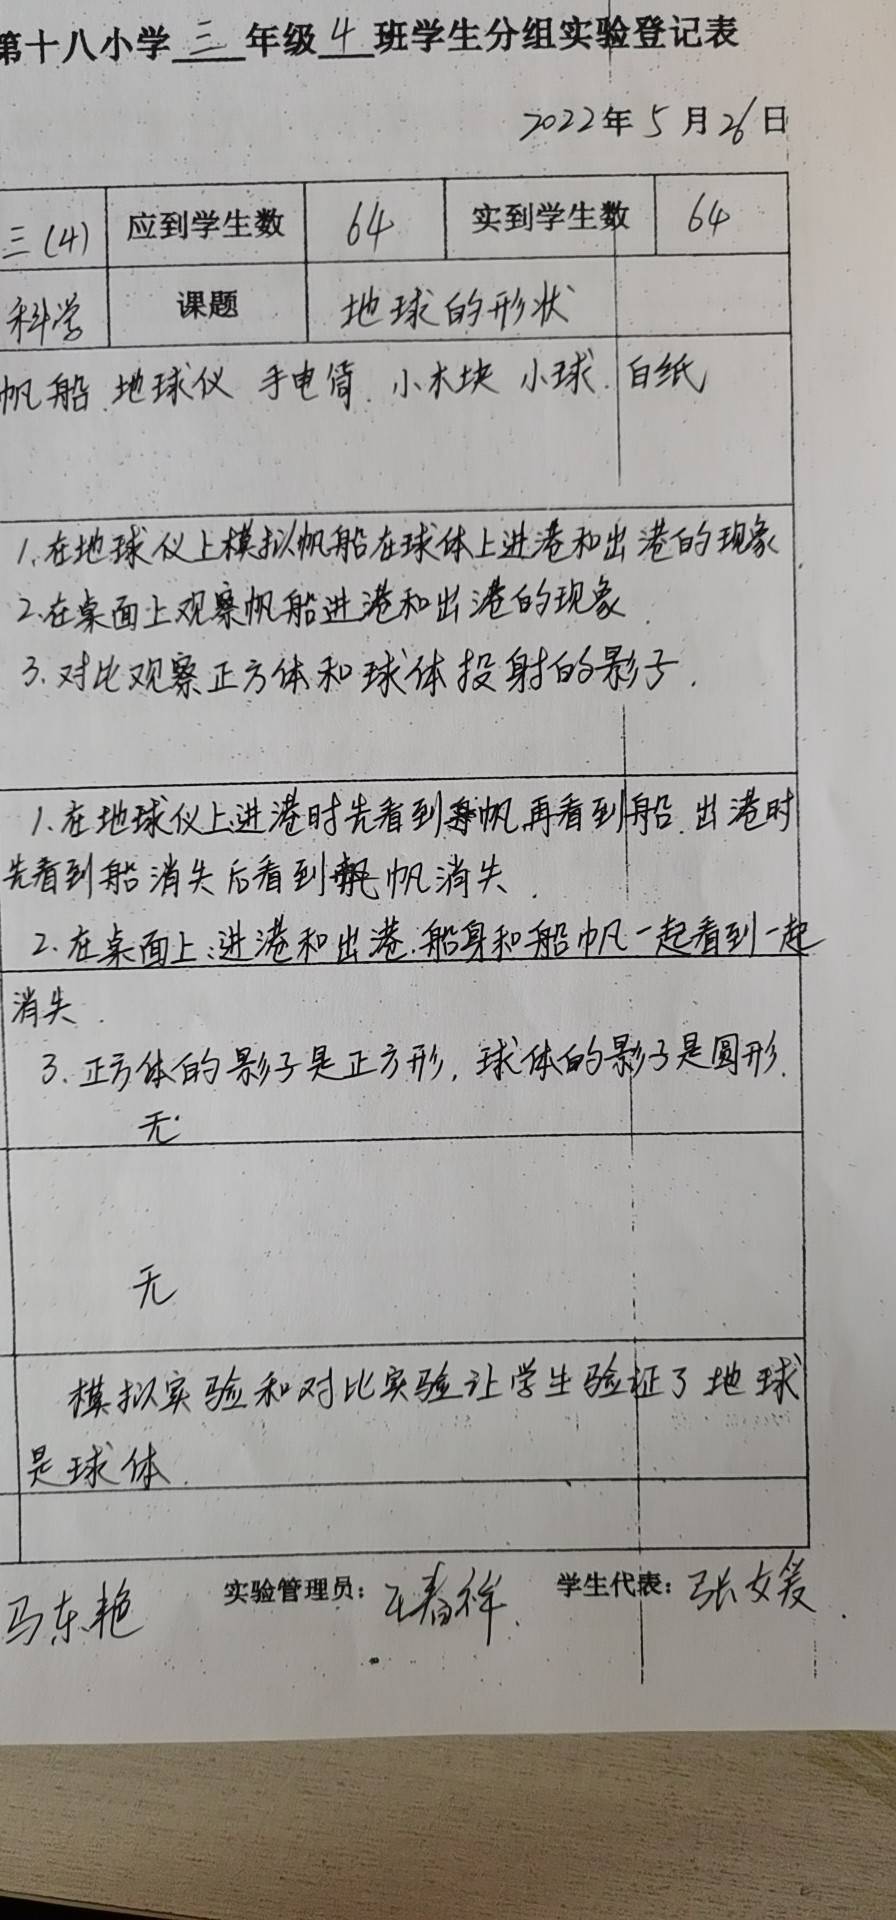 第十八小学三年级4班学生分组实验登记表
2022年5月26日
三(4) 应到学生数 64 实到学生数 64
科学 课题 地球的形状
帆船.地球仪 手电筒.小木块 小球.白纸
1.在地球仪上模拟帆船在球体上进港和出港的现象
2.在桌面上观察帆船进港和出港的现象.
3.对比观察正方体和球体投射的影子.
1.在地球仪上进港时先看到帆,再看到船.出港时
先看到船消失后看到帆消失.
2.在桌面上:进港和出港.船身和船帆一起看到一起
消失.
3.正方体的影子是正方形,球体的影子是圆形.
无.
无
模拟实验和对比实验让学生验证了地球
是球体.
马东艳 实验管理员: 王春祥. 学生代表: 张文爰